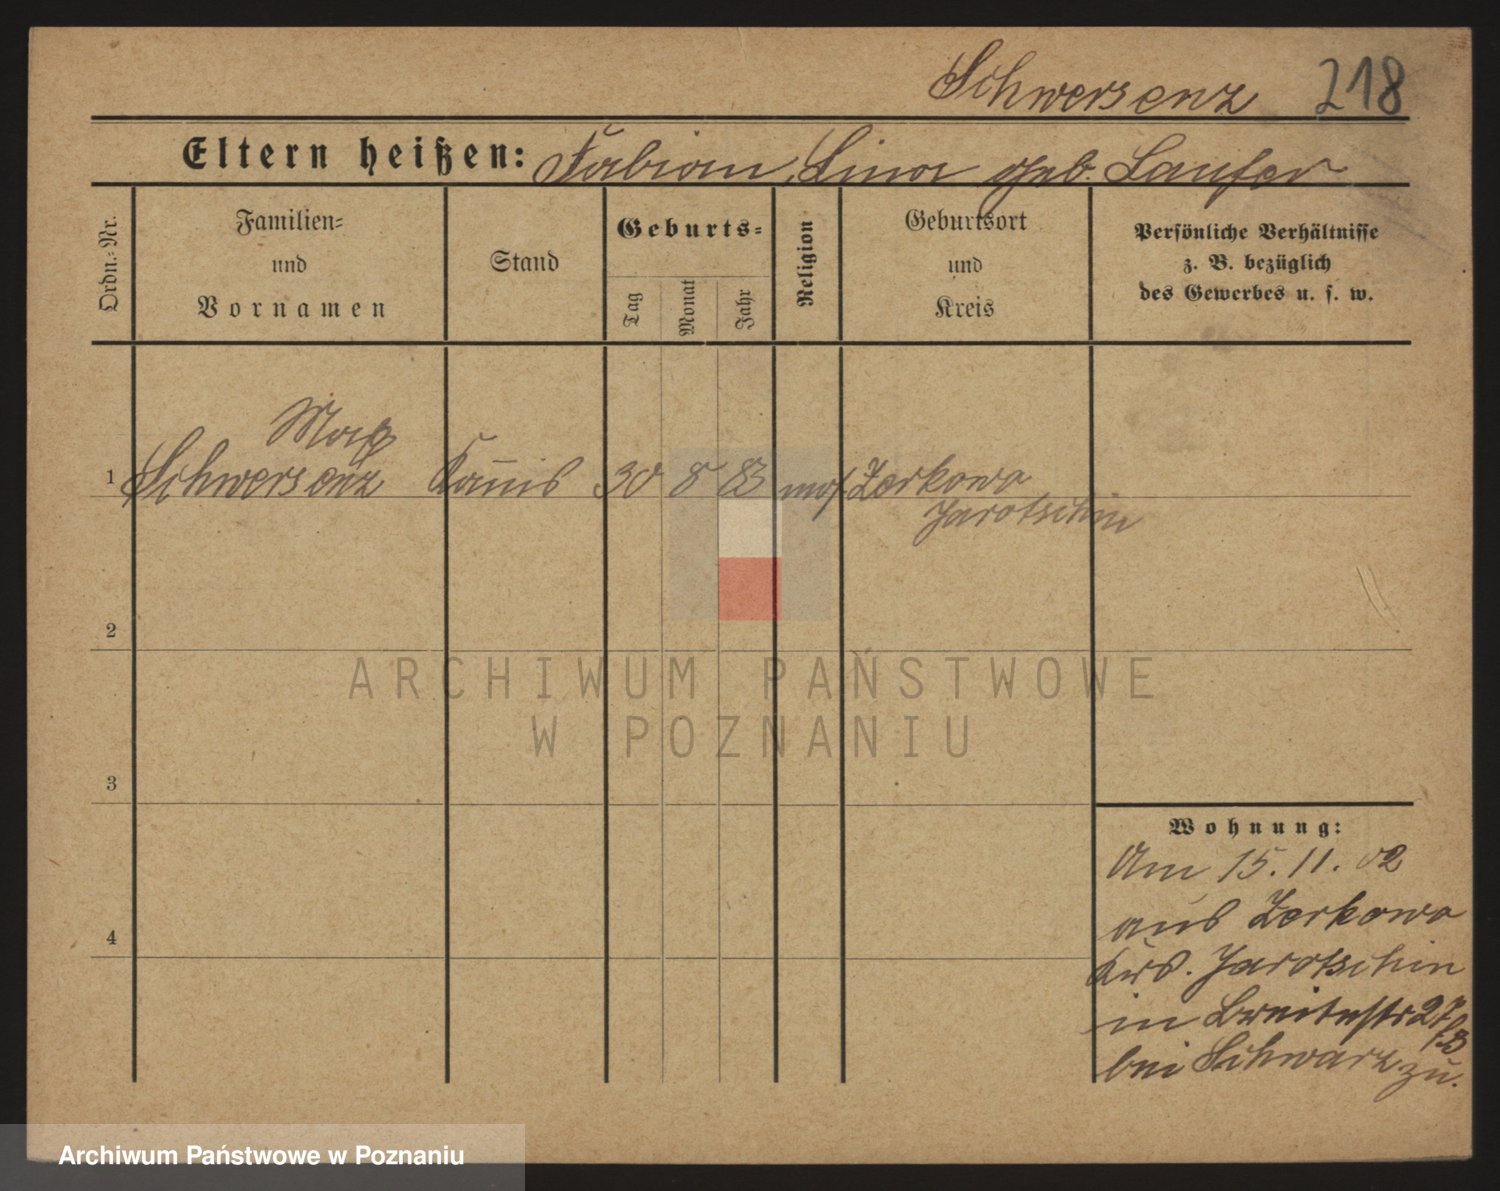 Schwersenz 218
Eltern heißen: Fabian, Lina geb. Laufer
Ordn.-Nr.
Familien-
und
Vornamen
Stand
Geburts-
Tag
Monat
Jahr
Religion
Geburtsort
und
Kreis
Persönliche Verhältnisse
z. B. bezüglich
des Gewerbes u. s. w.
Max
1 Schwersenz Komis 30 8 83 mos Zerkowo
Jarotschin
2
ARCHIWUM PAŃSTWOWE
W POZNANIU
3
4
Wohnung:
Am 15. 11. 02
aus Zerkowo
Krs. Jarotschin
in Breitestr 27
bei Schwarz zu.
Archiwum Państwowe w Poznaniu